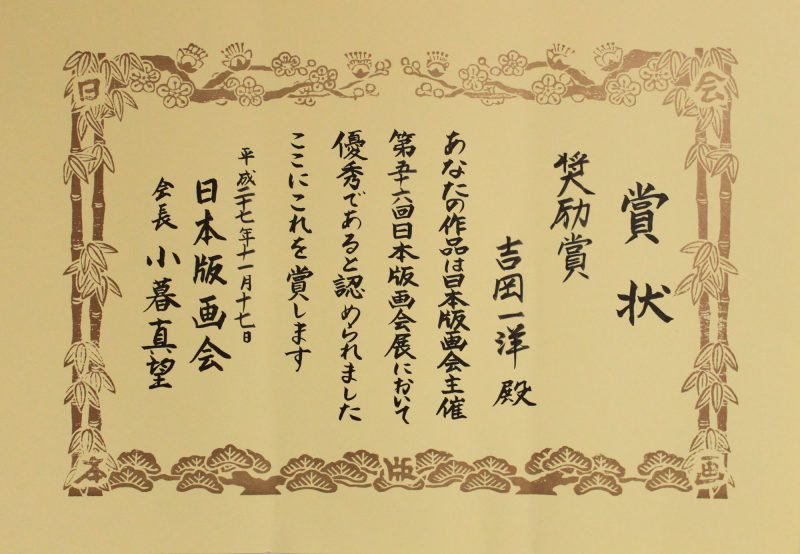 賞状
奨励賞
吉岡一洋 殿
あなたの作品は日本版画会主催
第五十六回日本版画会展において
優秀であると認められました
ここにこれを賞します
平成二十七年十一月十七日
日本版画会
会長 小暮真望
日
本
版
画
会